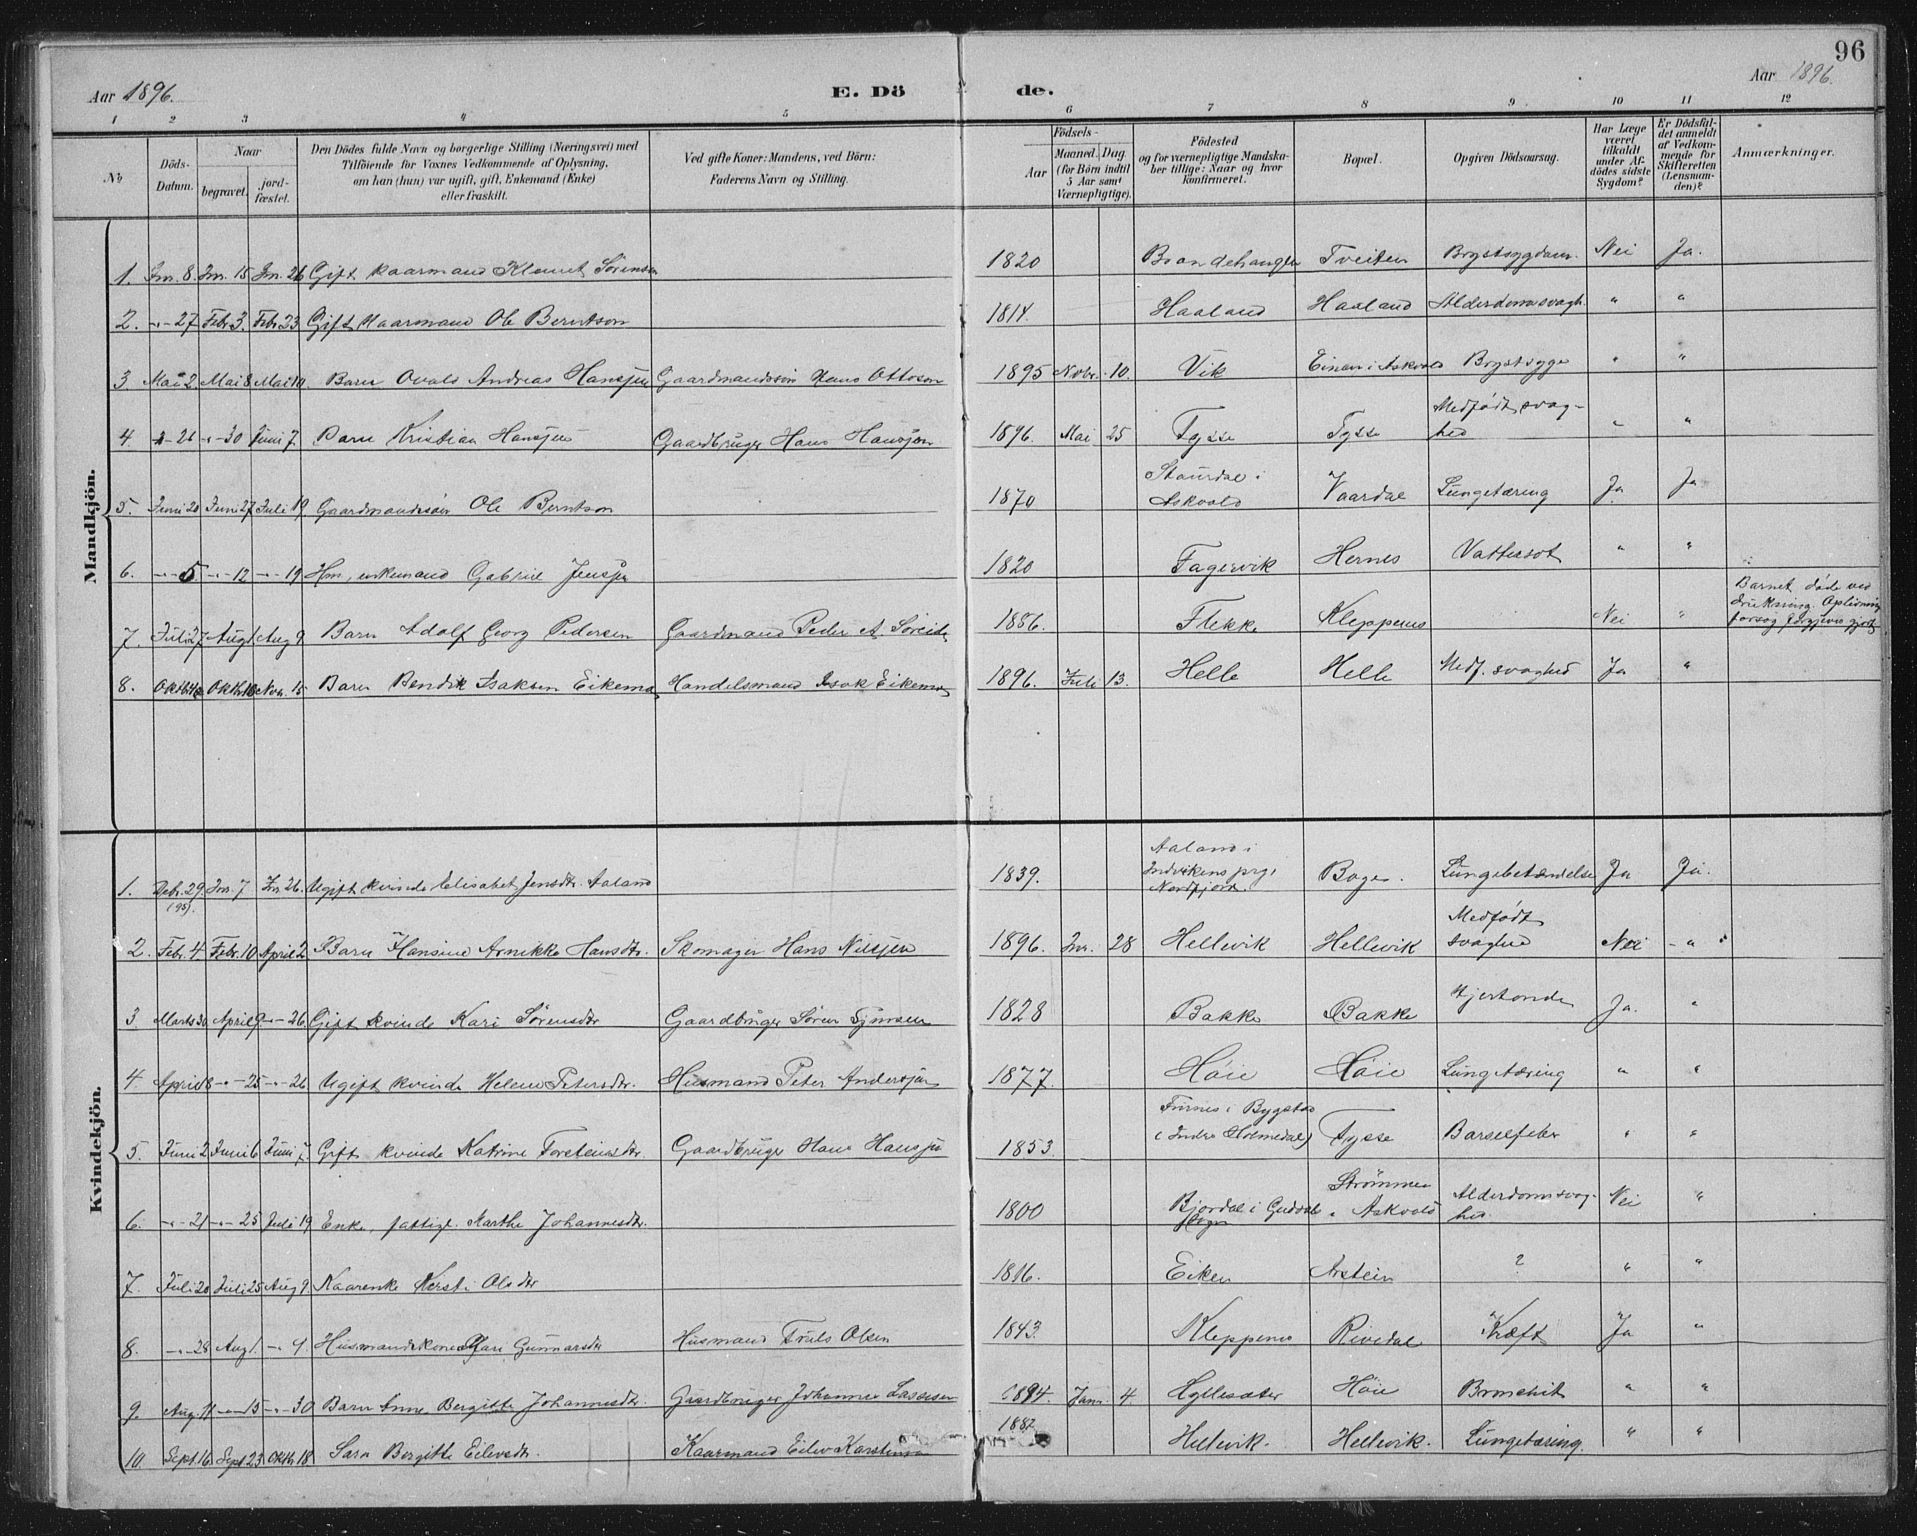 96
Aar 1896.
E. Döde.
Aar 1896.
1 2 3 4 5 6 7 8 9 10 11 12
No
Döds-Datum.
Naar
begravet.
jord-fæstet.
Den Dödes fulde Navn og borgerlige Stilling (Næringsvei) med
Tilföiende for Voxnes Vedkommende af Oplysning,
om han (hun) var ugift, gift, Enkemand (Enke)
eller fraskilt.
Ved gifte Koner: Mandens, ved Börn:
Faderens Navn og Stilling.
Födsels-
Aar
Maaned. Dag
(for Börn indtil
5 Aar samt
Værnepligtige).
Födested
og for værnepligtige Mandska-
ber tillige: Naar og hvor
konfirmeret.
Bopæl.
Opgiven Dödsaarsag.
Har Læge
været
tilkaldt
under Af-
dödes sidste
Sygdom?
Er Dödsfal-
det anmeldt
af Vedkom-
mende for
Skifteretten
(Lensman-
den)?
Anmærkninger.
Mandkjön.
1. Jnr. 8. Jnr. 15 Jnr. 26 Gift kaarmand Klemet Sörensen 1820 Tveiten Brystsygdom. Nei Ja.
2. -"- 27 Febr 3. Febr 23 Gift kaarmand Ole Berntson 1814. Haaland Haaland Alderdomssvagh. " "
3. Mai 2. Mai 8 Mai 10. Barn Ovald Andreas Hansjen Gaardmandssön Hans Ottoson 1895 Novbr. 10. Vik Einan i Askvold Brystsyge " "
4 -"- 26 -"- 30 Juni 7. Barn Kristian Hansjen Gaardbruger Hans Hansjen 1896. Mai 25 Tysse Tysse Medfödt svag-
hed " "
5. Juni 20 Juni 27 Juli 19 Gaardmandssön Ole Berntson 1870 Staurdal i
Askvold Vaardal Lungetæring Ja Ja
6. -"- 5 -"- 12 -"- 19 Hm, enkemand Gabriel Jensjen 1820 Fagervik Hernes Vattersot " "
7. Juli 27 Aug 1 Aug 9 Barn Adolf Georg Pedersen Gaardmand Peder A. Söreide 1886. Flekke Kleppenes Nei " Barnet döde ved
drukning. Oplivnings
forsög forgjeves gjort
8. Oktbr Oktbr 10 Nvr. 15 Barn Bendik Isaksen Eikemo Handelsmand Isak Eikemo 1896. Juli 13. Helle Helle Medf. svaghed Ja "
Kvindekjön.
1. Debr. 29 Jnr. 7 Jnr. 26. Ugift kvinde Elisabet Jensdtr. Aaland 1839. Aaland i
Indvikens prg.
Nordfjord Bogen. Lungebetændelse Ja Ja.
(95).
2. Febr. 4 Febr. 10 April 2 Barn Hansine Annikke Hansdtr. Skomager Hans Nilsjen 1896. Jnr. 28 Hellevik Hellevik Medfödt
svaghed Nei - " "
3 Marts 30 April 9 -"- 26 Gift kvinde Kari Sörensdtr Gaardbruger Sören 1828 Bakke Bakke Hjertonde Ja. "
4. April 18 -"- 25 -"- 26 Ugift kvinde Helene Petersdtr. Husmand Peter Andersjen 1877. Höie Höie Lungetæring " "
5. Juni 2 Juni 6 Juni 7. Gift kvinde Katrine Gaardbruger Hans Hansjen 1853. Furnes i Bygstad
(Indre Holmedal) Tysse Barselfeber " "
6. -"- 21 -"- 25 Juli 19 Enke, fattigl. Marthe Johannesdtr. 1800 Bjordal i Guddal
sogn Strömmen
i Askvold Alderdomssvag-
hed. Nei "
7. Juli 20 Juli 25 Aug 9. Kaarenke Kersti Olsdtr 1816. Eiken Arstein ? " "
8. -"- 28 Aug 1. -"- 9. Husmandskone Mari Gunnarsdtr Husmand Truls Olsen 1843. Kleppenes Rivedal Kræft Ja "
9. Aug. 11 -"- 15 -"- 30 Barn Anne Bergitte Johannesdtr. Gaardbruger Johannes Lassesen 1894. Janr. 4. Hyllesæter Höie Bronchit " "
10 Sept. 16 Sept 23 Oktbr. 18 Sara Bergitte Eilevsdtr. Kaarmand Eilev Karstensen 1882 Hellevik. Hellevik. Lungetæring. " "